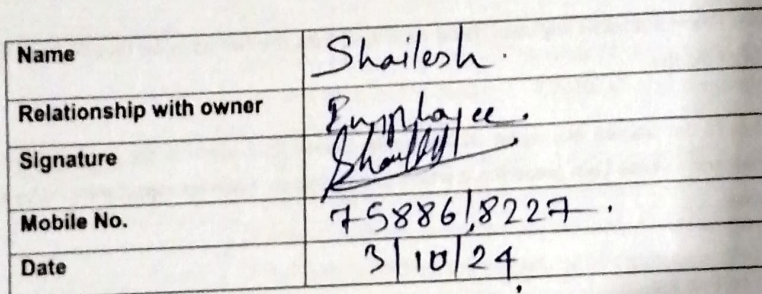 Name Shailesh.
Relationship with owner Employee.
Signature
Mobile No. 7588618227.
Date 3/10/24